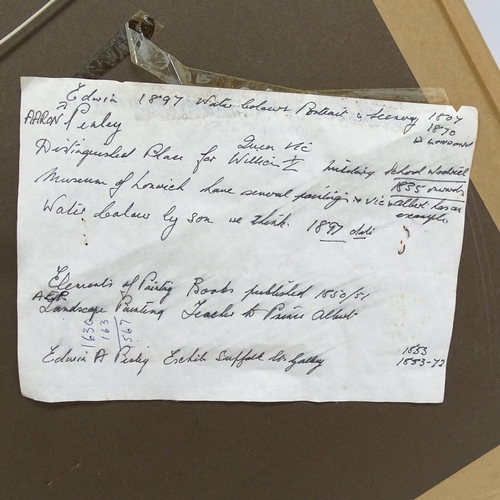 Edwin 1897 Water Colours Portrait & Scenery 1807
AARON Penley 1870
Queen Vic
Distinguished Place for William V
1885 onwards
Museum of have several paintings & Vic & Albert has an
Water Colour by son we think. 1897 example
Elements of Painting Books published 1850/51
A.E.P.
Landscape Painting Teacher to Prince Albert
1636
163
1567
Edwin A Penley Exhib Suffolk St Gallery 1853
1853-72